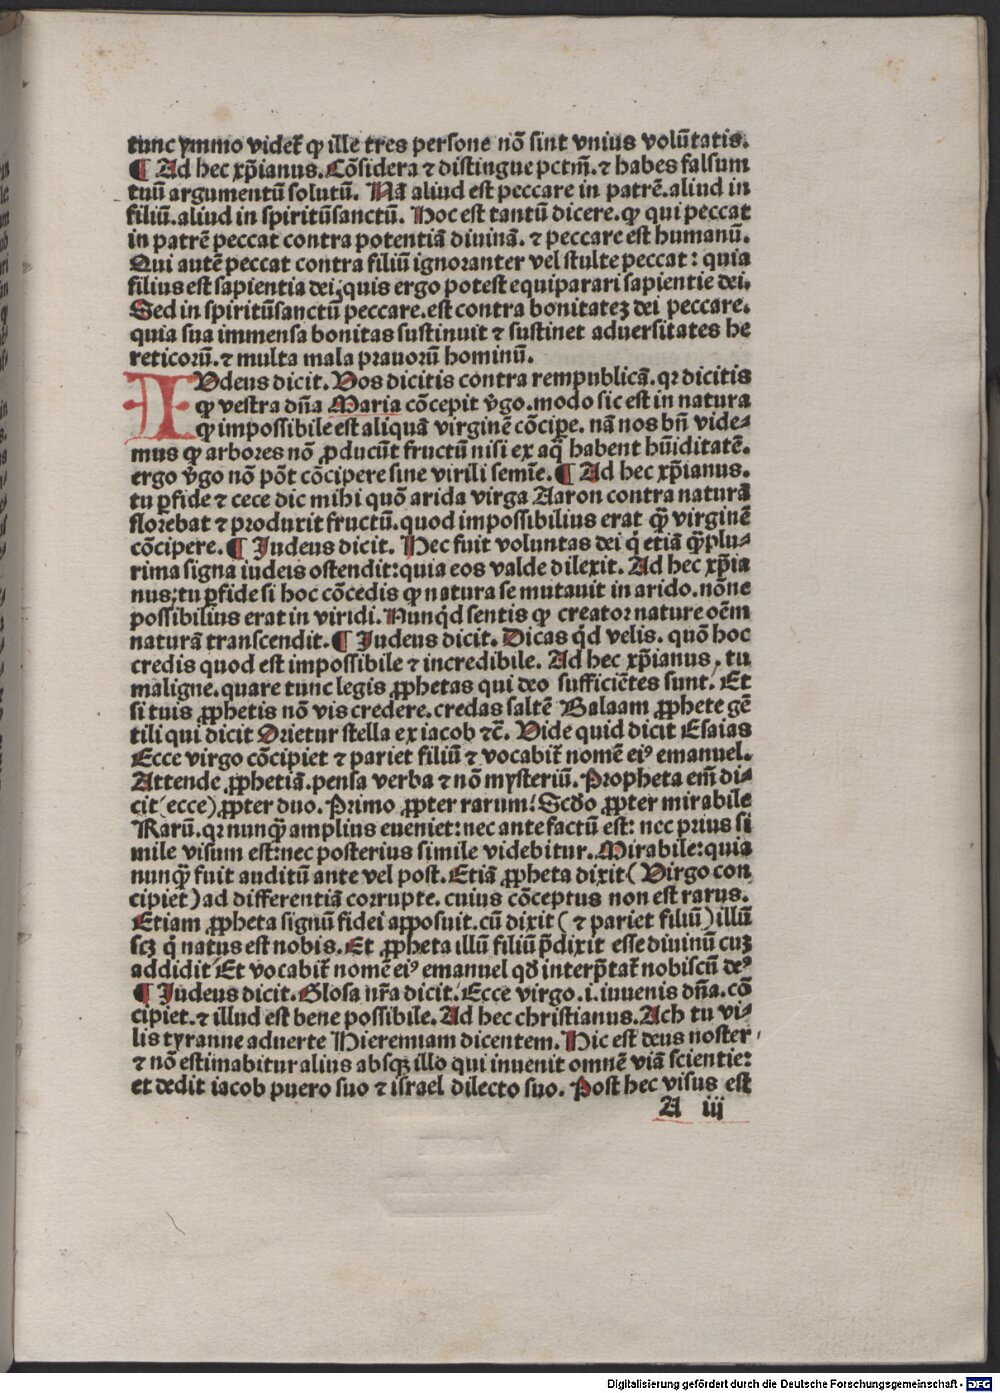 tunc ymmo videt̃ ꝙ ille tres persone nõ sint vnius volũtatis.
¶ Ad hec xp̃ianus. Cõsidera ⁊ distingue pctm̃. ⁊ habes falsum
tuũ argumentũ solutũ. Nã aliud est peccare in patrẽ. aliud in
filiũ. aliud in spiritũsanctũ. Hoc est tantũ dicere. ꝙ qui peccat
in patrẽ peccat contra potentiã diuinã. ⁊ peccare est humanũ.
Qui autẽ peccat contra filiũ ignoranter vel stulte peccat: quia
filius est sapientia dei, quis ergo potest equiparari sapientie dei.
Sed in spiritũsanctũ peccare. est contra bonitatez dei peccare.
quia sua immensa bonitas sustinuit ⁊ sustinet aduersitates he
reticorũ. ⁊ multa mala prauorũ hominũ.
IVdeus dicit. Vos dicitis contra rempublicã. qꝛ dicitis
ꝙ vestra dña Maria cõcepit v̓go. modo sic est in natura
ꝙ impossibile est aliquã virginẽ cõcipe. nã nos bñ vide⸗
mus ꝙ arbores nõ ꝓducũt fructũ nisi ex aq̃ habent hũiditatẽ.
ergo v̓go nõ põt cõcipere sine virili semĩe. ¶ Ad hec xp̃ianus.
tu ꝑfide ⁊ cece dic mihi quõ arida virga Aaron contra naturã
florebat ⁊ produxit fructũ. quod impossibilius erat q̃ꝫ virginẽ
cõcipere. ¶ Judeus dicit. Hec fuit voluntas dei q̇ etiã q̃ꝫplu⸗
rima signa iudeis ostendit: quia eos valde dilexit. Ad hec xp̃ia
nus; tu ꝑfide si hoc cõcedis ꝙ natura se mutauit in arido. nõne
possibilius erat in viridi. Nunq̇d sentis ꝙ creator nature oẽm
naturã transcendit. ¶ Judeus dicit. Dicas q̇d velis. quõ hoc
credis quod est impossibile ⁊ incredibile. Ad hec xp̃ianus. tu
maligne. quare tunc legis ꝓphetas qui deo sufficiẽtes sunt. Et
si tuis ꝓphetis nõ vis credere. credas saltẽ Balaam ꝓphete gẽ
tili qui dicit Orietur stella ex iacob ⁊c̃. Vide quid dicit Esaias
Ecce virgo cõcipiet ⁊ pariet filiũ ⁊ vocabit̃ nomẽ eiꝰ emanuel.
Attende ꝓphetiã. pensa verba ⁊ nõ mysteriũ. Propheta em̃ di⸗
cit (ecce) ꝓpter duo. Primo ꝓpter rarum: Scd̃o ꝓpter mirabile
Rarũ. qꝛ nunq̃ꝫ amplius eueniet: nec ante factũ est: nec prius si
mile visum est: nec posterius simile videbitur. Mirabile: quia
nunq̃ꝫ fuit auditũ ante vel post. Etiã ꝓpheta dixit (Virgo con
cipiet) ad differentiã corrupte. cuius cõceptus non est rarus.
Etiam ꝓpheta signũ fidei apposuit. cũ dixit (⁊ pariet filiũ) illũ
scꝫ q̇ natus est nobis. Et ꝓpheta illũ filiũ p̃dixit esse diuinũ cuꝫ
addidit Et vocabit̃ nomẽ eiꝰ emanuel qd̃ interp̃tat̃ nobiscũ deꝰ
¶ Judeus dicit. Glosa nr̃a dicit. Ecce virgo .i. iuuenis dña. cõ
cipiet. ⁊ illud est bene possibile. Ad hec christianus. Ach tu vi⸗
lis tyranne aduerte Hieremiam dicentem. Hic est deus noster
⁊ nõ estimabitur alius absqꝫ illo qui inuenit omnẽ viã scientie:
et dedit iacob puero suo ⁊ israel dilecto suo. Post hec visus est
A iij
Digitalisierung gefördert durch die Deutsche Forschungsgemeinschaft - DFG